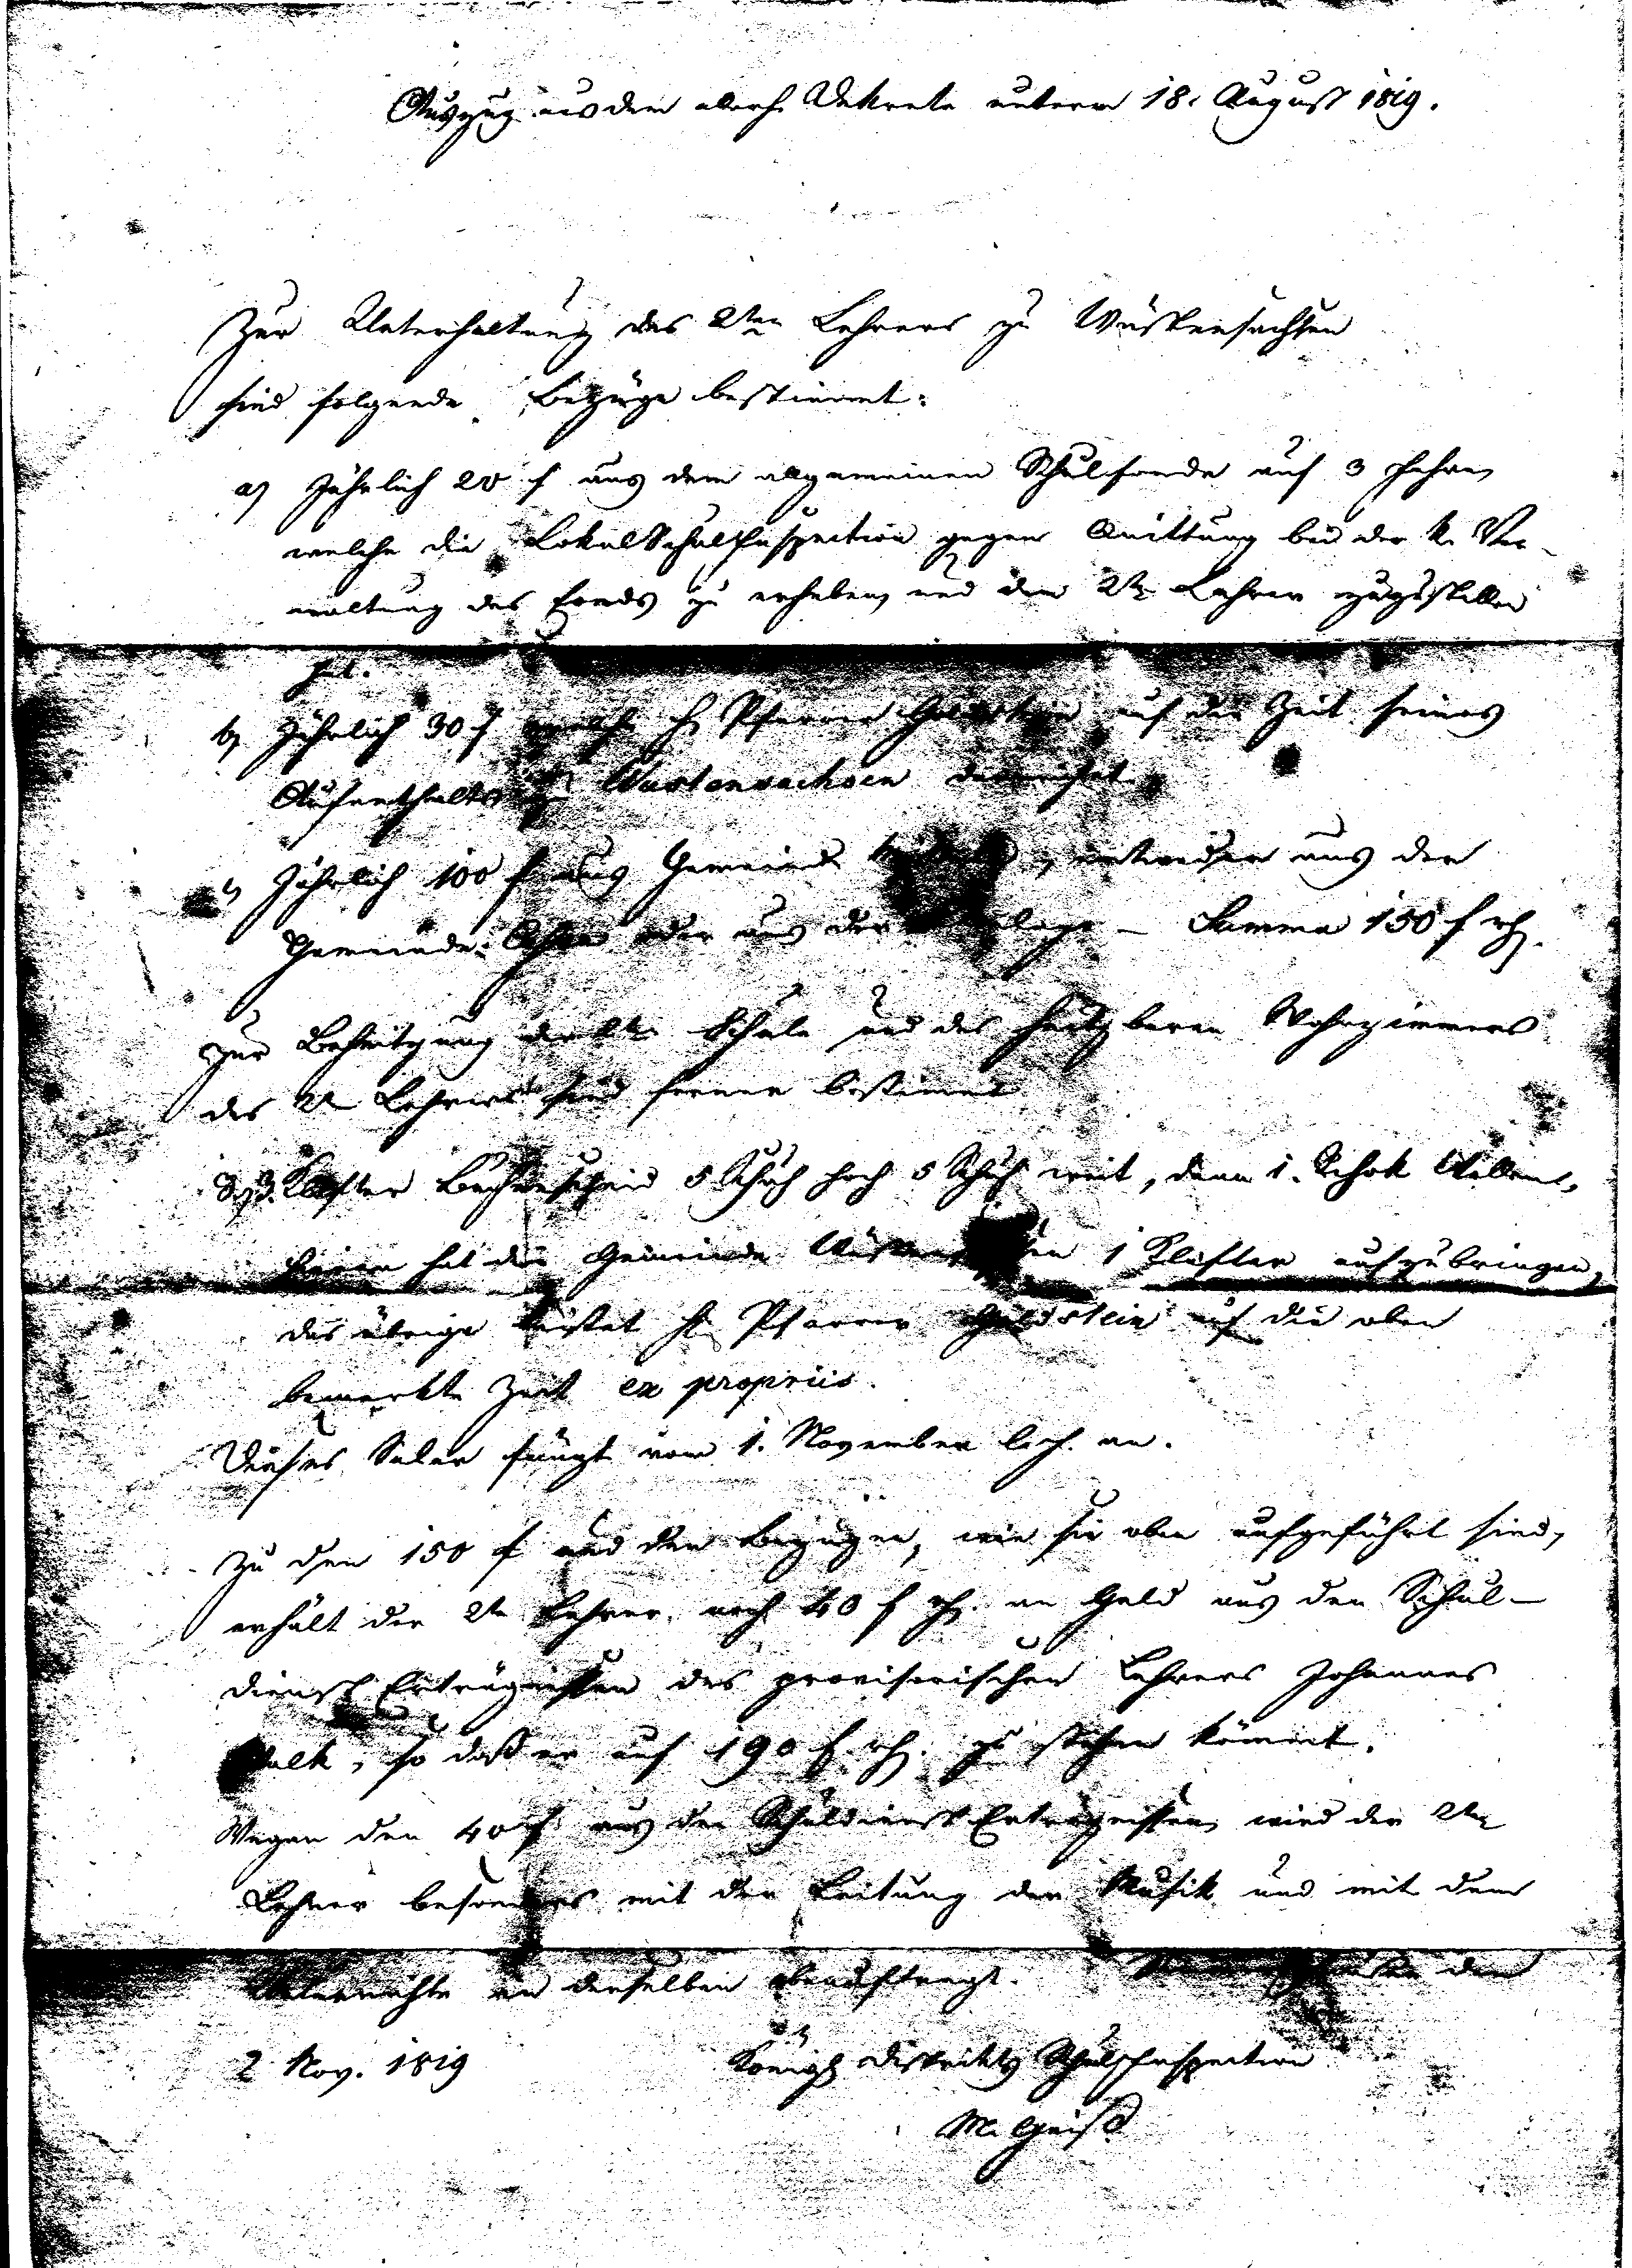 Auszug aus dem allerh. Dekrete unterm 18. August 1819.
Zur Unterhaltung des 2ten Lehrers zu Wüstensachsen
sind folgende Bezüge bestimmt:
a) Jährlich 20 f aus dem allgemeinen Schulfonde auf 3 Jahre,
welche die LokalSchulInspection gegen Quittung bei der k. Ver-
waltung des Fonds zu erheben, und dem 2ten Lehrer zuzustellen
hat.
b) Jährlich 30 f welche H. Pfarrer Goldstein auf die Zeit seines
Aufenthalts zu Wustensachsen
c) Jährlich 100 f aus Gemeinde entweder aus der
Gemeinde- oder aus der Umlage – Summa 150 f rh.
Zur Beheitzung der 2ten Schule und des heitzbaren Wohnzimmers
des 2ten Lehrers sind ferner bestimmt
d) 3. Klafter Buchenscheid 5 Schuh hoch 5 Schuh weit, dann 1. Schok Wellen,
hievon hat die Gemeinde Wüstensachsen 1 Klafter aufzubringen,
das übrige leistet H. Pfarrer Goldstein auf die oben
bemerkte Zeit ex propriis.
Dieses Salar fängt vom 1. November l. J. an.
Zu den 150 f und den Bezügen, wie sie oben aufgeführt sind,
erhält der 2te Lehrer noch 40 f rh. an Geld aus den Schul-
dienst Erträgnissen des provisorischen Lehrers Johannes
so daß er auf 190 f. rh. zu stehen kömmt.
Wegen den 40 f aus den Schuldienst Erträgnissen wird der 2te
Lehrer besonders mit der Leitung der Musik und mit dem
Unterrichte in derselben beauftragt. den
2 Nov. 1819 Königl. Distrikts Schulinspection
M. Geist